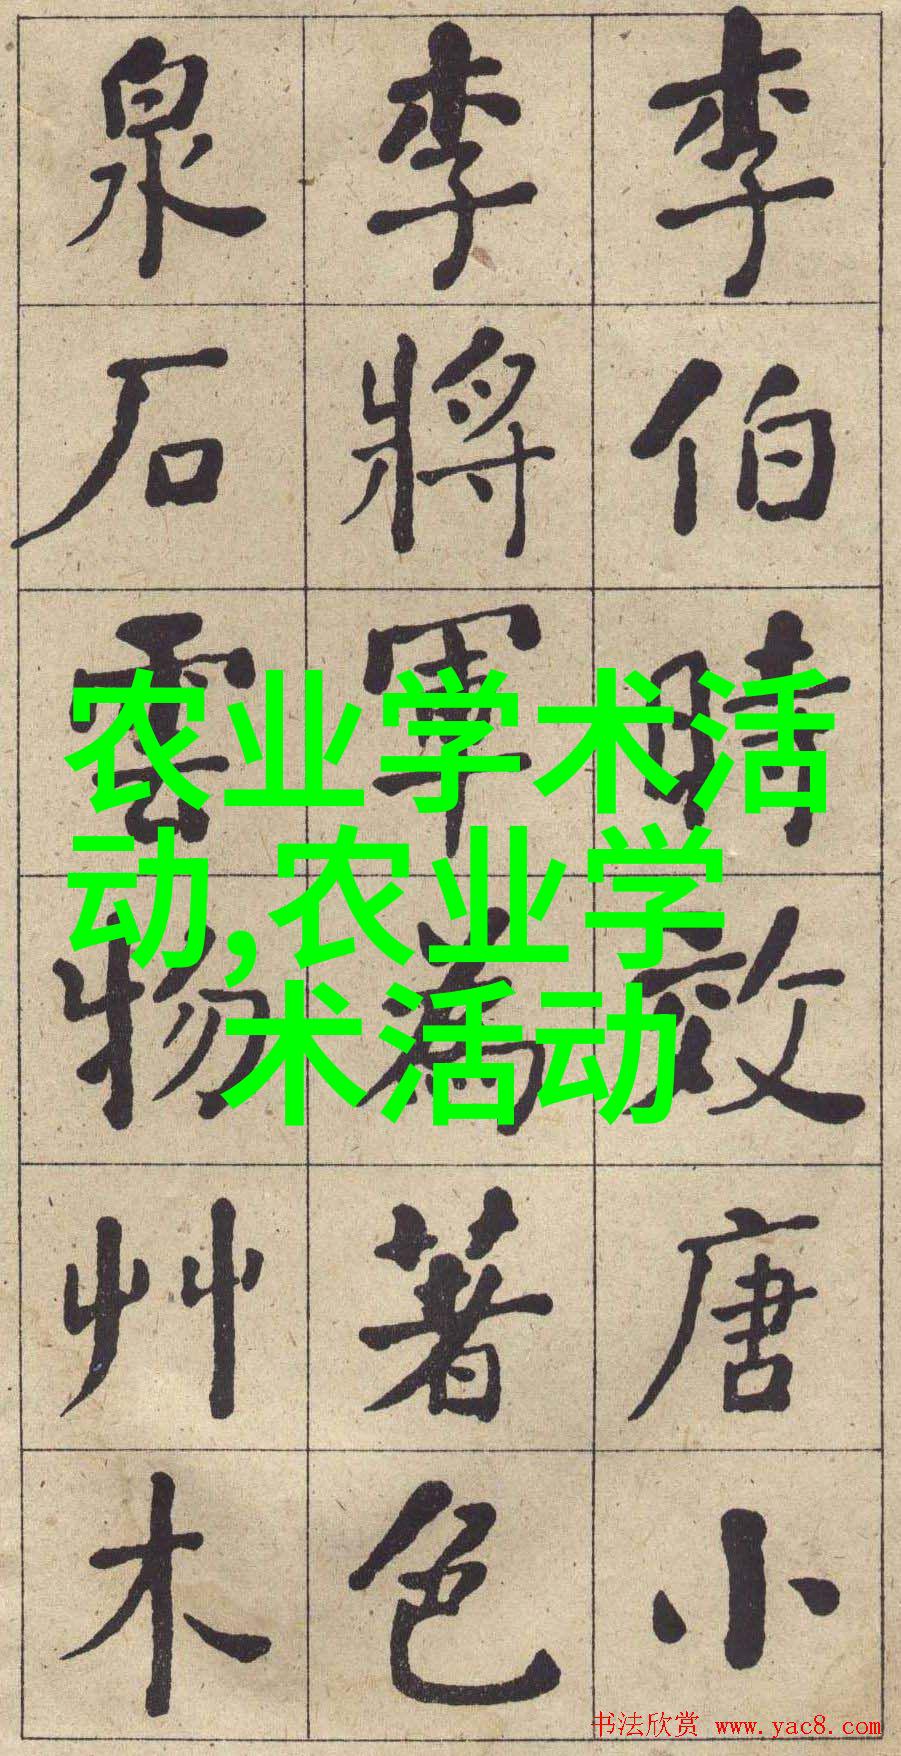 李伯時效唐小
李將軍為著色
泉石雲物艸木
农业学术活
动,农业学
术活动
书法欣赏 www.yac8.com